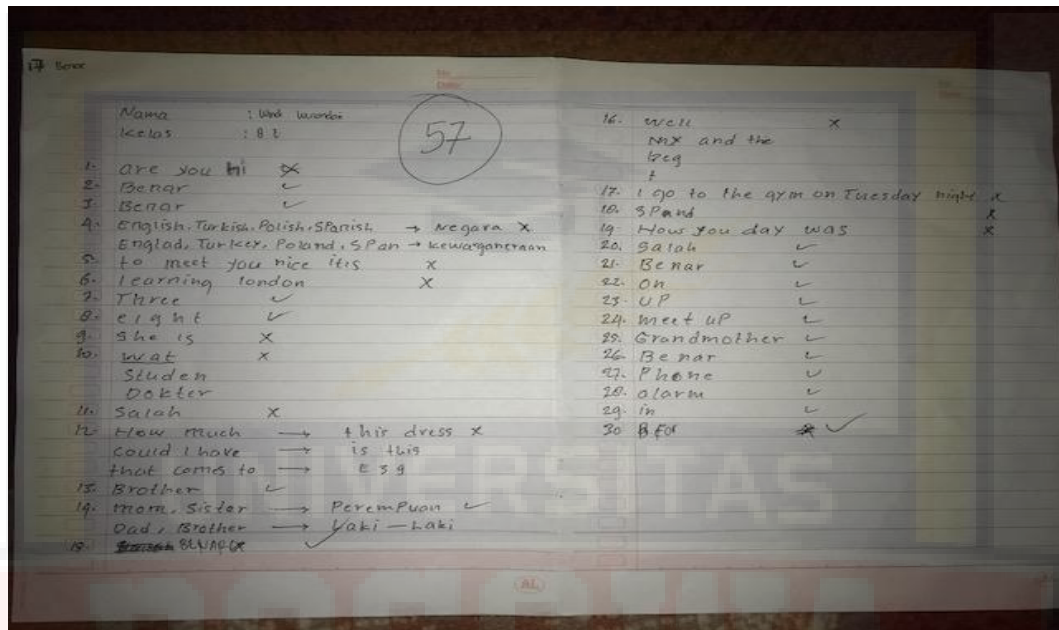 Benar
No.
Date:
Nama :
Kelas : 8
57
1. are you hi ×
2. Benar ✓
3. Benar ✓
4. English. Turkish. Polish. SPanish → Negara ×
Englad, Turkey, Poland, SPan → kewarganeraan
5. to meet you nice itis ×
6. learning london ×
7. Three ✓
8. eight ✓
9. She is ×
10. wat ×
Studen
Dokter
11. Salah ×
12. How much → this dress ×
could I have → is this
that comes to → E 39
13. Brother ✓
14. mom, Sister → PeremPuan ✓
Dad, Brother → Laki - Laki
15. BENAR ✓
16. well ×
and the
beg
t
17. I go to the gym on Tuesday night ×
18. SPand ×
19. How you day was ×
20. Salah ✓
21. Benar ✓
22. on ✓
23. UP ✓
24. meet uP ✓
25. Grandmother ✓
26. Benar ✓
27. Phone ✓
28. alarm ✓
29. in ✓
30 For ✓
UNIVERSITAS
AL